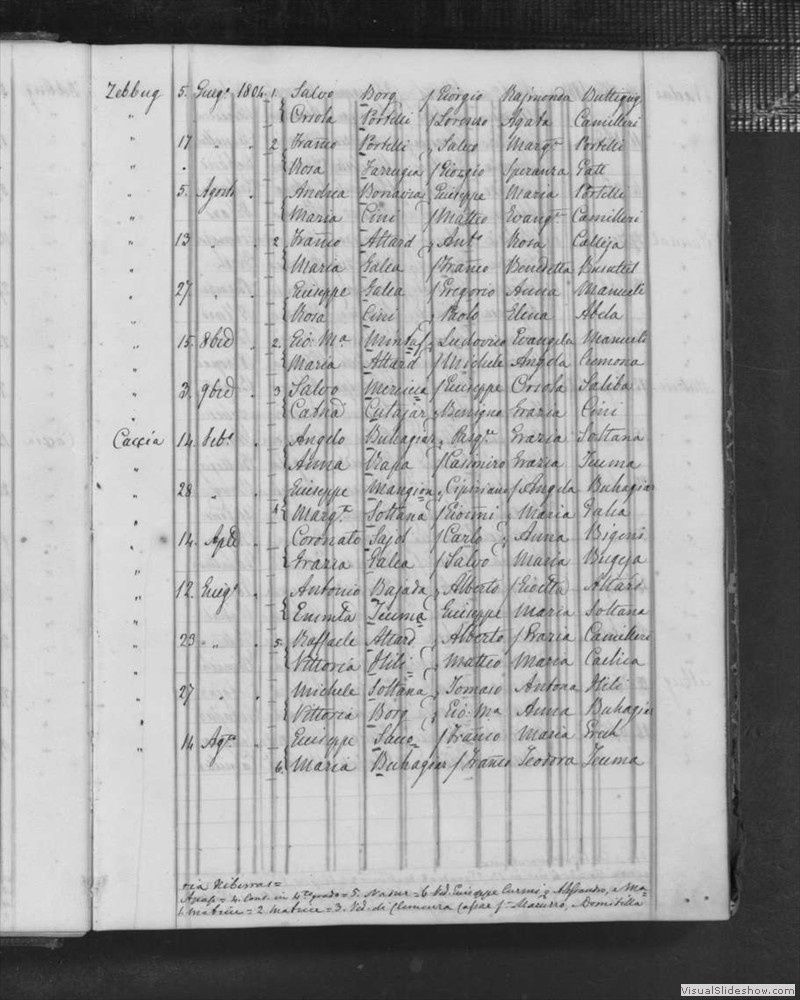 Zebbug 5. Giug.o 1804. 1. Salvo Borg f Giorgio Rajmonda Buttigieg
" Orsola Portelli f Lorenzo Agata Camilleri
" 17 " . 2 Franco Portelli f Salvo Marg.a Portelli
" Rosa Farrugia f Giorgio Speranza Gatt
" 5. Agosto . Andrea Bonavia f Giuseppe Maria Portelli
" Maria Cini f Matteo Evang.a Camilleri
" 13 " . 2 Franco Attard f Ant.o Rosa Calleja
" Maria Galea f Franco Benedetta Busuttil
" 27. " . Giuseppe Galea f Gregorio Anna Manueli
" Rosa Cini f Paolo Elena Abela
" 15. 8bre . 2. Gio. Ma. Mintuf f Ludovico Evangela Manueli
" Maria Attard f Michele Angela Cremona
" 3. 9bre . 3 Salvo Mercieca f Giuseppe Orsola Saliba
" Catna Cutajar f Benigno Grazia Cini
Caccia 14. Feb.o . Angelo Buhagiar f Pasq.le Grazia Soltana
" Anna Rapa f Casimiro Grazia Teuma
" 28 " . Giuseppe Mangion f Cipriano f Angela Buhagiar
" 4 Marg.a Soltana f Gioanni f Maria Galea
" 14. Aple . Coronato Sajd f Carlo f Anna Bigeni
" Grazia Galea f Salvo Maria Bugeja
" 12. Giug.o . Antonio Bajada f Alberto f Gioetta Attard
" Enimta Teuma f Giuseppe Maria Soltana
" 23 " . 5. Raffaele Attard f Alberto f Grazia Camilleri
" Vittoria Hili f Matteo Maria Cachia
" 27 " . Michele Soltana f Tomaso Antona Hili
" Vittoria Borg f Gio: Ma Anna Buhagiar
" 14 Ag.o . Giuseppe Sacco f Franco Maria Grech
" 6. Maria Buhagiar f Franco Teodora Teuma
= 4. Cons. in 4.to grado = 5. Nasur = 6 Ved. Giuseppe Curmi q Alessandro, e Ma=
1. Matrice = 2 Matrice = 3. Ved. di Clemenza Cassar f.
VisualSlideshow.com